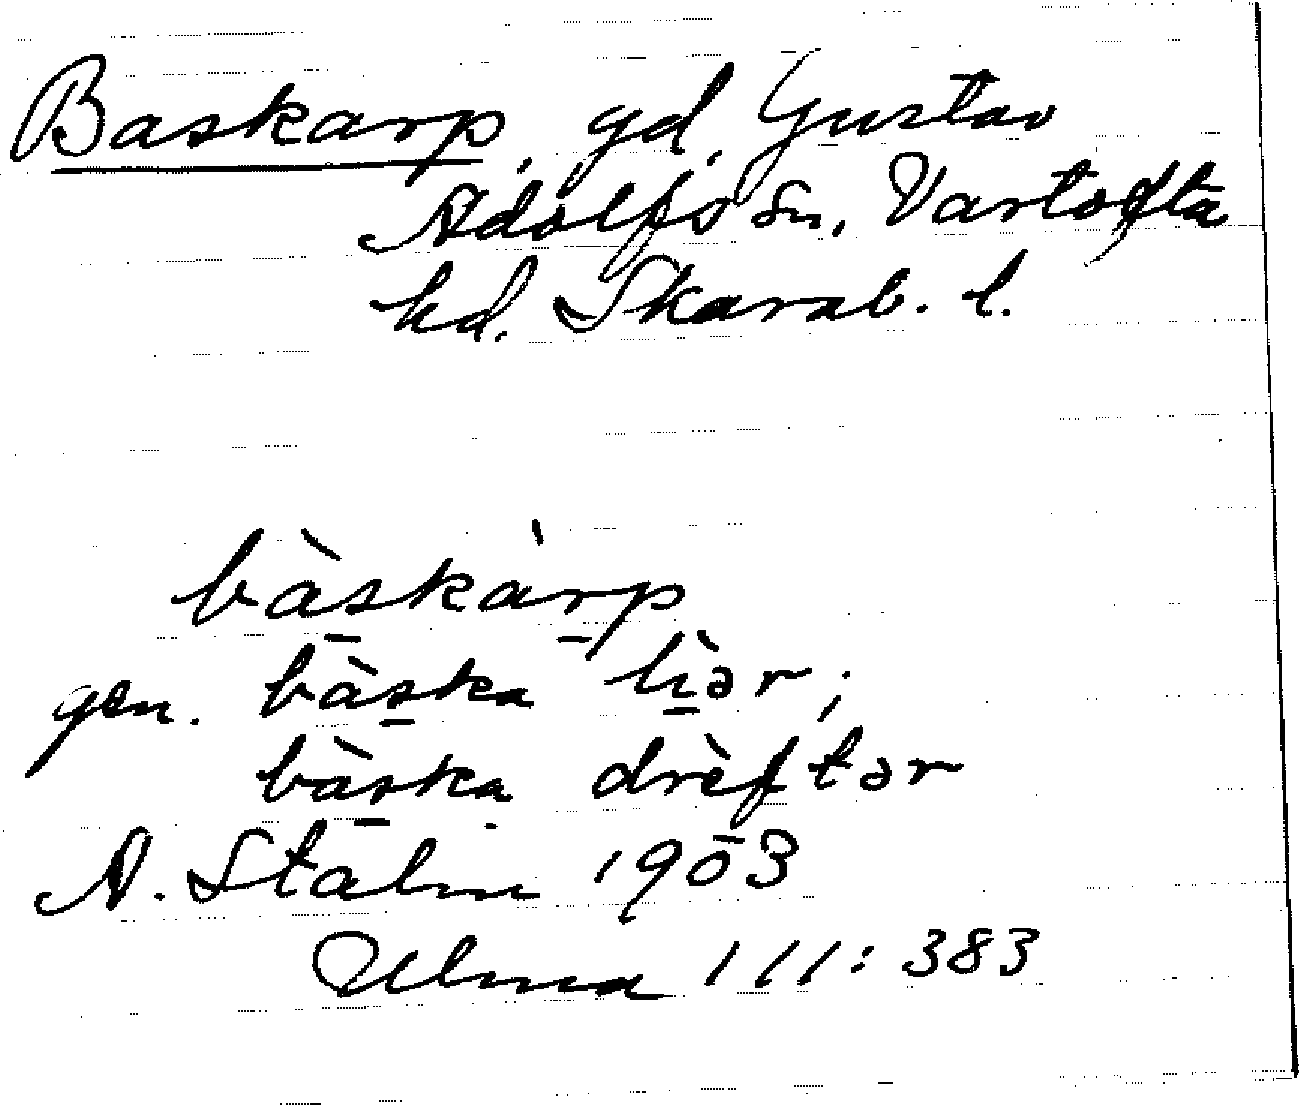 Baskarp, gd, Gustav
Adolfs sn, Vartofta
hd. Skarab. l.
bàskàrp
gen. bàska lìər;
bàska drèftər
A. Stalin 1903
Ulma 111:383